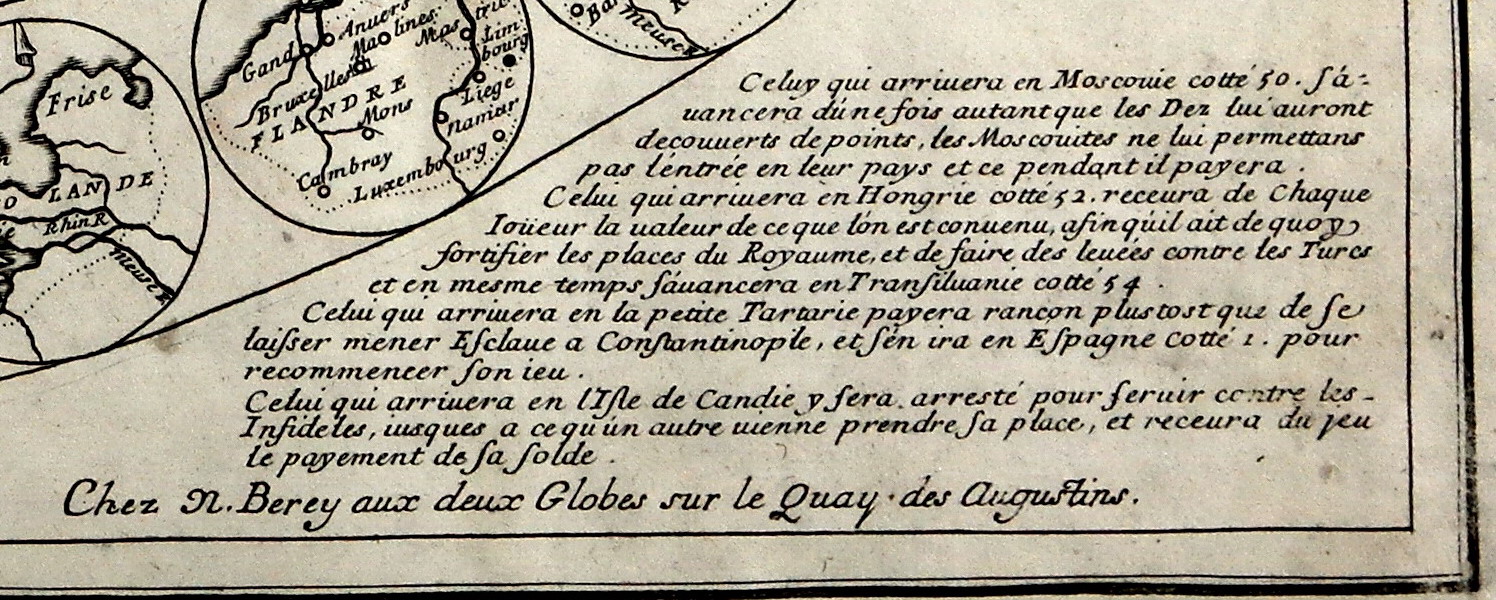 Frise
LANDE
Rhin R
Meuse
Anuers
Gand
Malines
Mastric
Lim
bourg
Bruxelles
Liege
FLANDRE
namur
Mons
Cambray
Luxembourg
Meuse
Celuy qui arriuera en Moscouie cotté 50. ſ'a-
uancera d'une fois autant que les Dez lui auront
decouuerts de points, les Moscouites ne lui permettans
pas l'éntrée en leur pays et ce pendant il payera .
Celui qui arriuera en Hongrie cotté 52. receura de Chaque
Ioüeur la ualeur de ce que l'on est conuenu, afin qu'il ait de quoy
fortifier les places du Royaume, et de faire des leuées contre les Turcs
et en mesme temps ſ'auancera en Tranſiluanie cotté 54 .
Celui qui arriuera en la petite Tartarie payera rançon plustost que de ſe
laiſſer mener Eſclaue a Conſtantinople, et ſ'en ira en Eſpagne Cotté 1. pour
recommencer ſon ieu .
Celui qui arriuera en l'Iſle de Candie y ſera arresté pour ſeruir contre les
Infideles, iusques a ce qu'un autre uienne prendre ſa place, et receura du jeu
le payement de ſa ſolde .
Chez N. Berey aux deux Globes sur le Quay des Augustins.